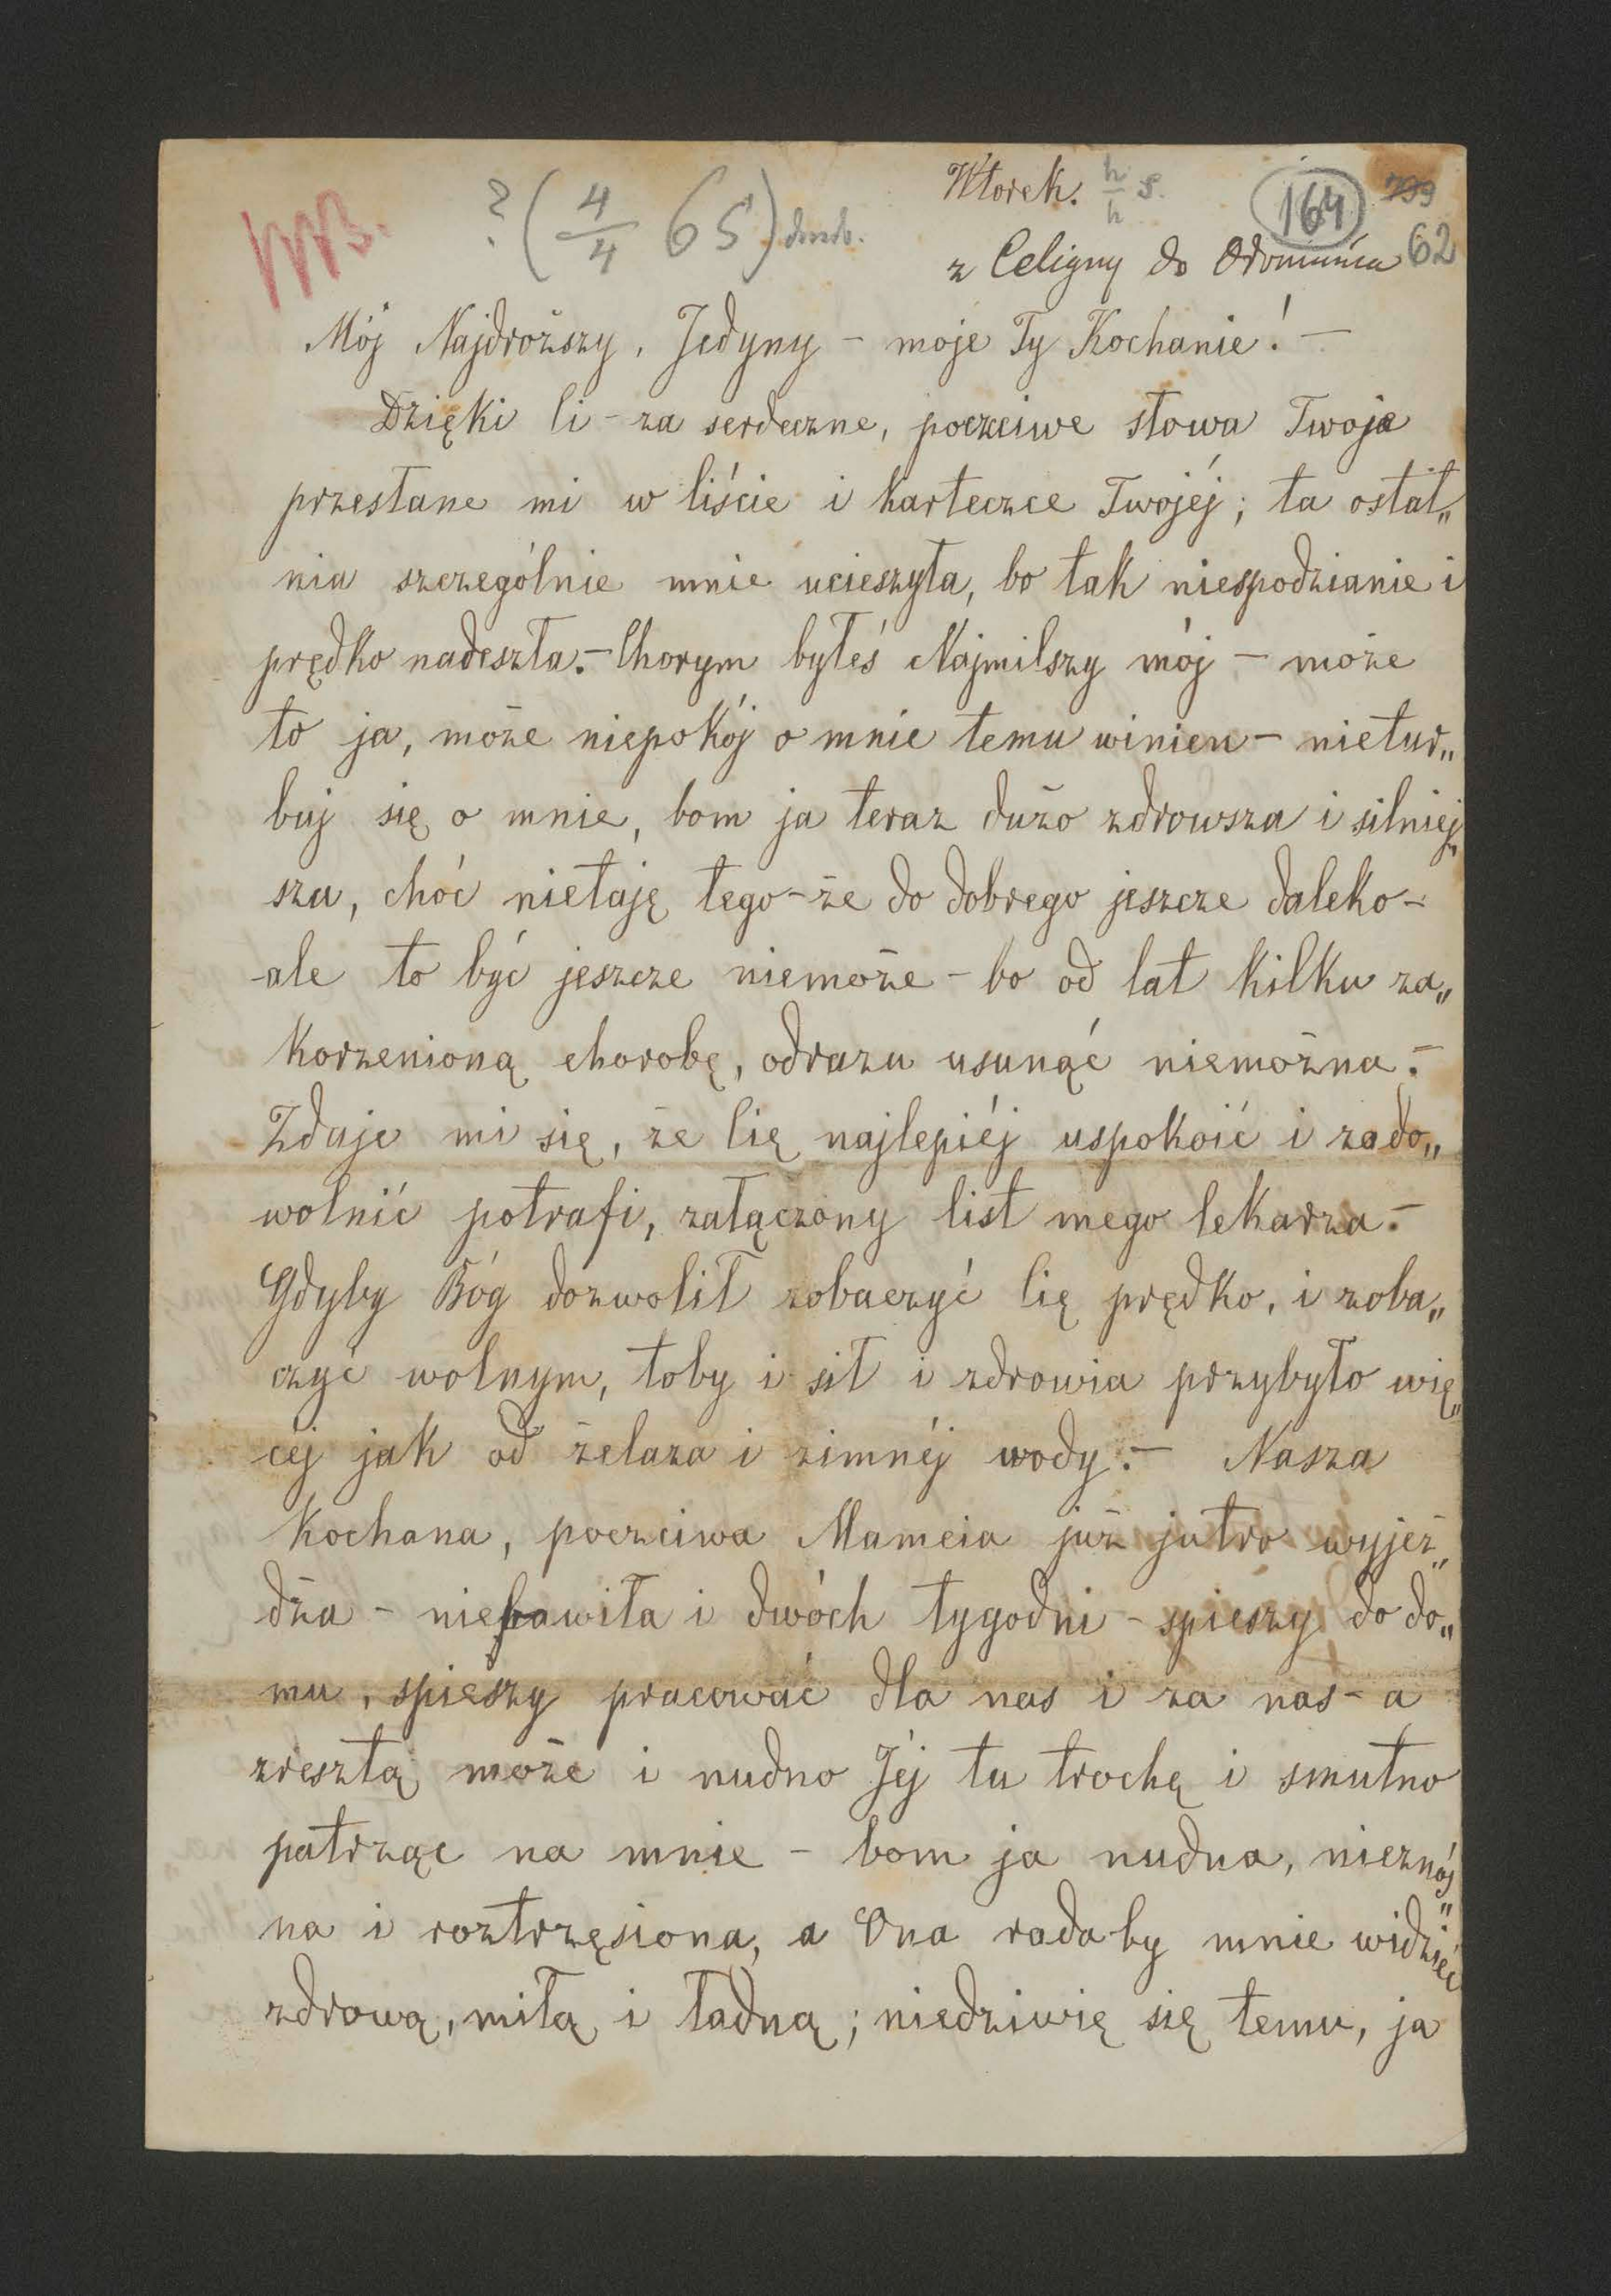 Wtorek. 4/4 s.
164 799
? (4/4 65)
z Celigny do Ołomuńca 62
Mój Najdroższy, Jedyny – moje Ty Kochanie! –
Dzięki Ci – za serdeczne, poczciwe słowa Twoje
przesłane mi w liście i karteczce Twojéj; ta ostat„
nia szczególnie mnie ucieszyła, bo tak niespodzianie i
prędko nadeszła. – Chorym byłeś Najmilszy mój – może
to ja, może niepokój o mnie temu winien – nietur„
buj się o mnie, bom ja teraz dużo zdrowsza i silniej„
sza, choć nietaję tego – że do dobrego jeszcze daleko –
ale to być jeszcze niemoże – bo od lat kilku za„
korzenioną chorobę, odrazu usunąć niemożna. –
Zdaje mi się, że Cię najlepiéj uspokoić i zado„
wolnić potrafi, załączony list mego lekarza. –
Gdyby Bóg dozwolił zobaczyć Cię prędko, i zoba„
czyć wolnym, toby i sił i zdrowia przybyło wię„
céj jak od żelaza i zimnéj wody. – Nasza
Kochana, poczciwa Mameia już jutro wyjeż„
dża – niebawiła i dwóch tygodni – spieszy do do„
mu, spieszy pracować dla nas i za nas – a
zresztą może i nudno Jéj tu trochę i smutno
patrząc na mnie – bom ja nudna, nieznoś„
na i roztrzęsiona, a Ona rada by mnie widzieć
zdrową, miłą i ładną; niedziwię się temu, ja